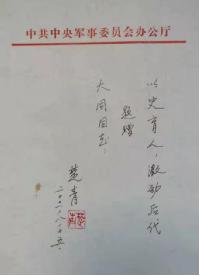 中共中央军事委员会办公厅
以史育人，激励后代
题赠
大同同志：
楚青
二〇一一.八.十五.